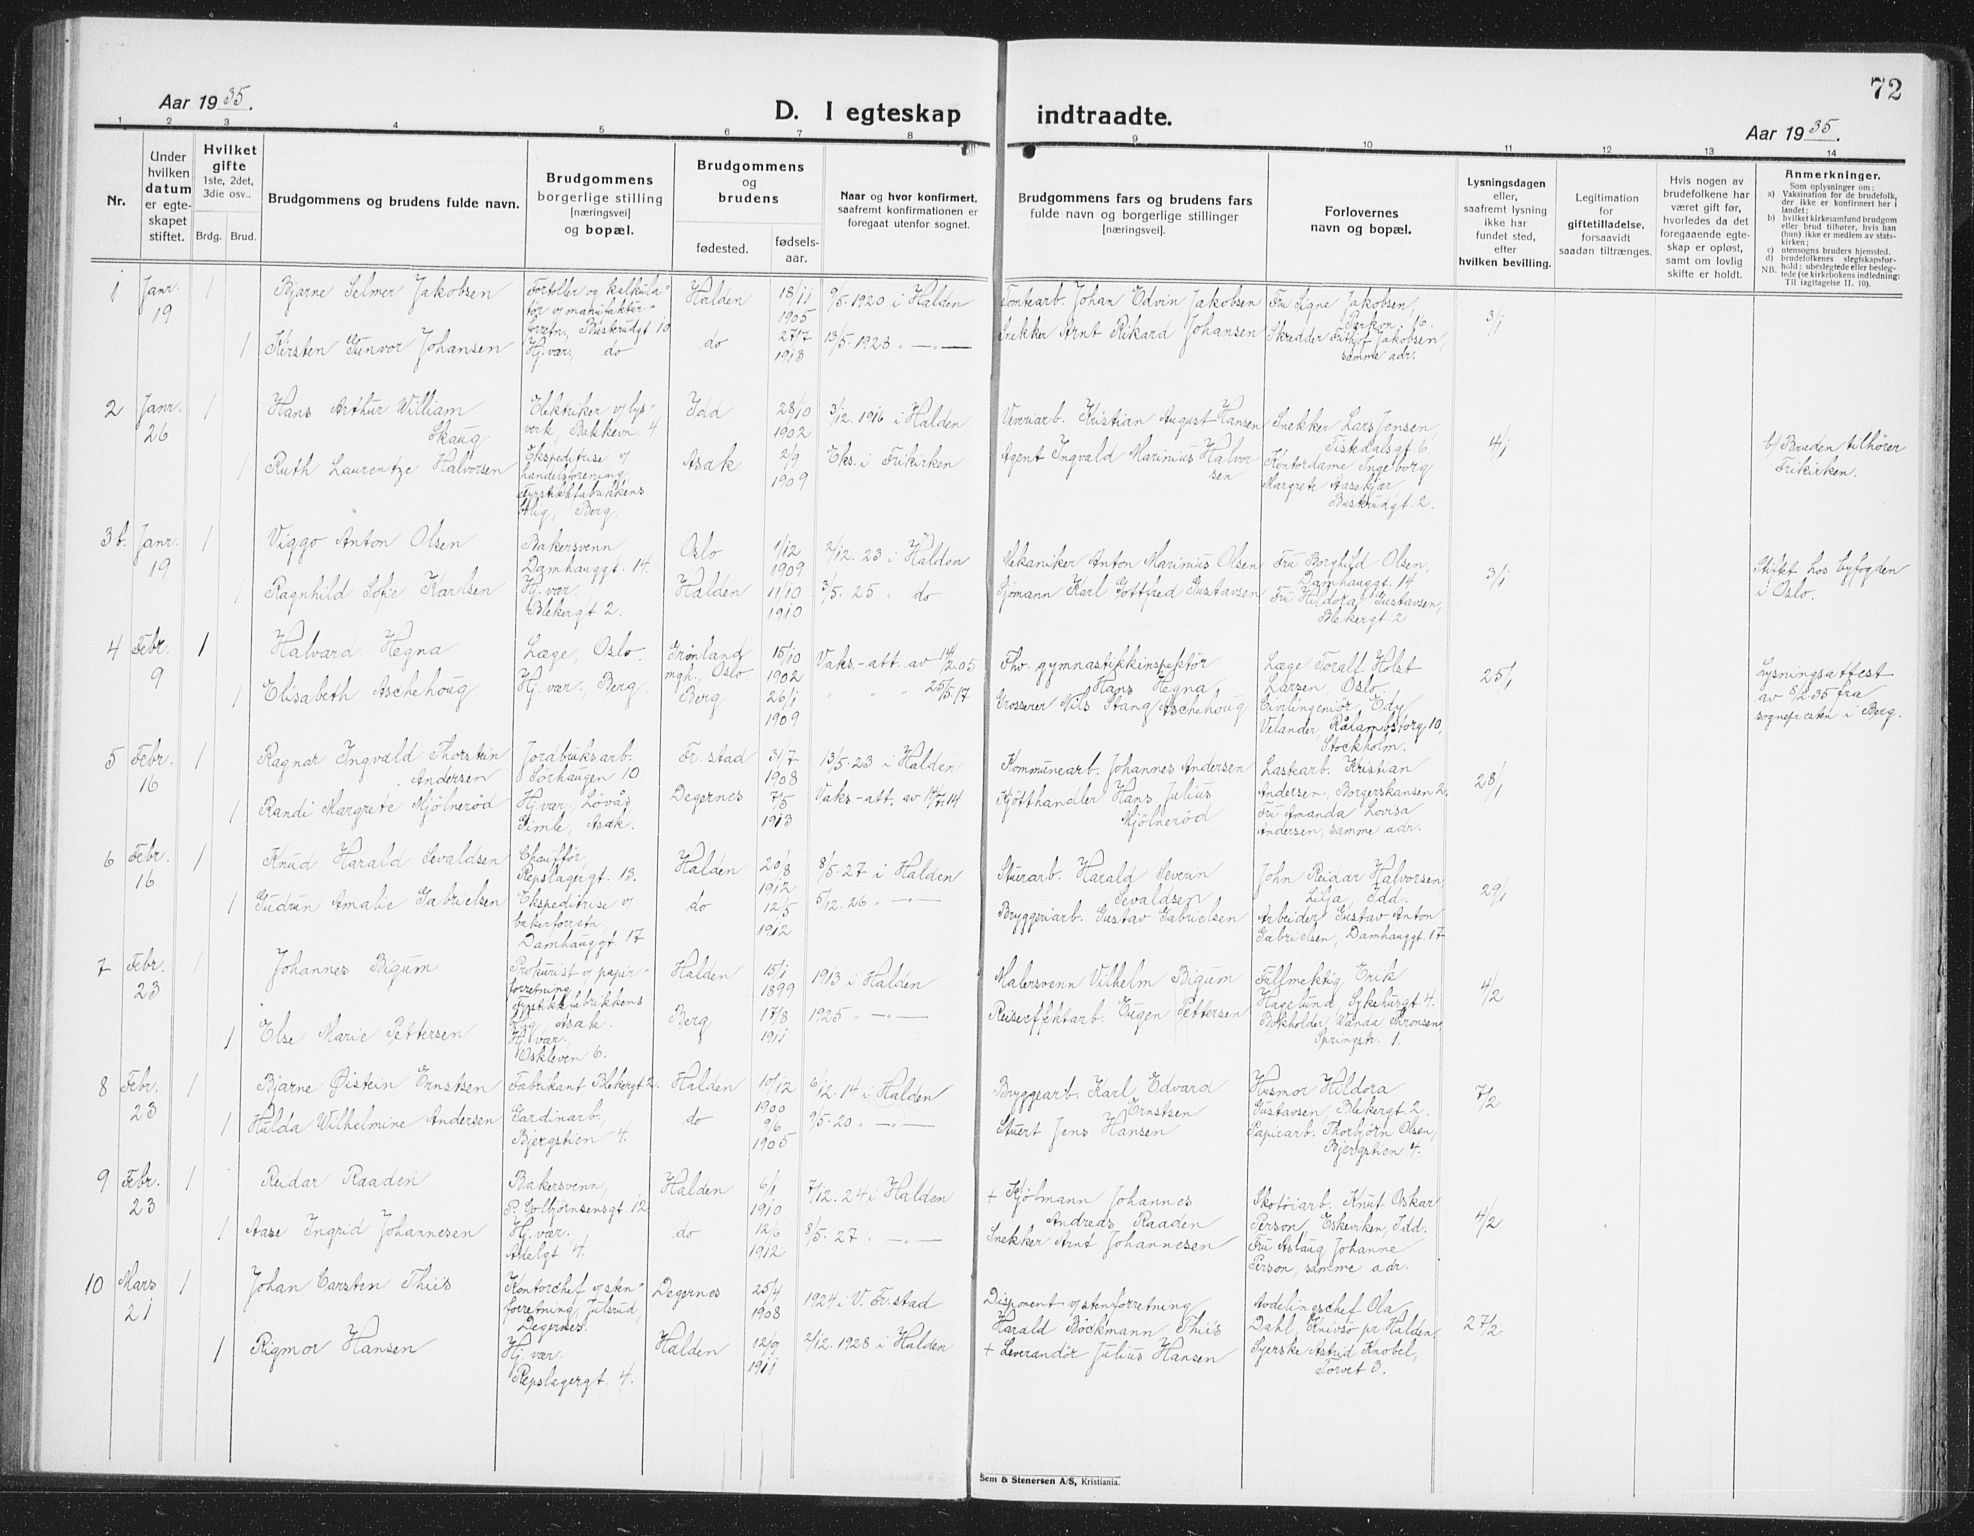 72
Aar 1935.
D. I egteskap indtraadte.
Aar 1935.
1 2 3 4 5 6 7 8 9 10 11 12 13 14
Nr.
Under hvilken datum er egteskapet stiftet.
Hvilket gifte
1ste, 2det, 3die osv..
Brdg. Brud.
Brudgommens og brudens fulde navn.
Brudgommens borgerlige stilling [næringsvei] og bopæl.
Brudgommens og brudens
fødested. fødsels-aar.
Naar og hvor konfirmert, saafremt konfirmationen er foregaat utenfor sognet.
Brudgommens fars og brudens fars fulde navn og borgerlige stillinger [næringsvei].
Forlovernes navn og bopæl.
Lysningsdagen eller, saafremt lysning ikke har fundet sted, efter hvilken bevilling.
Legitimation for giftetilladelse, forsaavidt saadan tiltrænges.
Hvis nogen av brudefolkene har været gift før, hvorledes da det foregaaende egteskap er opløst, samt om lovlig skifte er holdt.
Anmerkninger.
Som oplysninger om:
a) Vaksination for de brudefolk, der ikke er konfirmert her i landet;
b) hvilket kirkesamfund brudgom eller brud tilhører, hvis han (hun) ikke er medlem av statskirken;
c) utensogns bruders hjemsted.
d) brudefolkenes slegtskapsforhold: ubeslegtede eller beslegtede (se kirkebokens indledning: Til iagttagelse II. 10).
NB.
1 Janr. 19 1 Bjarne Selmer Jakobsen
Fortoller og kalkulatør v/ manufakturforretn., Buskrudgt 10
Halden 18/11 1905 9/5-1920 i Halden
Tomtearb. Johan Edvin Jakobsen
Fru Signe Jakobsen, Parkvn. 16.
3/1
1 Kirsten Gunvor Johansen
Hj.vær, do
do 27/7 1913 13/5-1928 -"-
Snekker Arnt Rikard Johansen
Skredder Frithjof Jakobsen, samme adr.
2 Janr. 26 1 Hans Arthur William Skaug
Elektriker v/ lysverk, Bakkevn. 4.
Idd 28/10 1902 3/12.1916 i Halden
Veveriarb. Kristian August Hansen
Snekker Lars Jensen, Fiskedalsgt 6.
4/1
1 Ruth Laurentze Halvorsen
Ekspeditrise v/ Landelsforening, Fyrstikkfabrikkens bolig, Berg.
Asak 2/9 1909 Eks. i Frikirken
Agent Ingvald Marinius Halvorsen
Kontordame Ingeborg Margrete Aasekjær Buskrudgt. 2.
b/ Bruden tilhører Frikirken.
3b. Janr. 19 1 Viggo Anton Olsen
Bakersvenn Damhauggt. 14.
Oslo 1/12 1909 2/12. 23 i Halden
Mekaniker Anton Marinius Olsen
Fru Borghild Olsen, Damhauggt. 14
3/1
Stiftet hos byfogden i Oslo.
1 Ragnhild Sofie Karlsen
Hj.vær. Blekergt 2.
Halden 11/10 1910 3/5. 25 " do
Sjømann Karl Gottfred Gustavsen
Fru Hildora Gustavsen, Blekergt. 2
4 Febr. 9 1 Halvard Hegna
Læge, Oslo.
Grønland mgh., Oslo 15/10 1902 Vaks.-att. av 14/2.05
Fhv. gymnastikkinspektør Hans Hegna
Læge Toralf Holst Larsen, Oslo.
25/1
Lysningsattest av 8/2-35 fra sognepresten i Berg.
1 Elisabeth Aschehoug
Hj.vær, Berg.
Berg 26/1 1909 " " " 25/5.17
Grosserer Nils Stang Aschehoug
Civilingeniør Edy Velander, Rålambstorg 10, Stockholm.
5 Febr. 16 1 Ragnar Ingvald Thorstein Andersen
Jordbruksarb. Sørhaugen 10.
Fr.stad 31/7 1908 13/5-23 i Halden
Kommunearb. Johannes Andersen
Lastearb. Kristian Andersen, Borgerskansen 2,
28/1
1 Randi Margrete Mjølnerød
Hj.vær, Løvås Gimle, Asak.
Degernes 7/5 1913 Vaks-att. av 14/7.14
Kjøtthandler Hans Julius Mjølnerød
Fru Amanda Lovisa Andersen, samme adr.
6 Febr. 16 1 Knud Harald Sevaldsen
Chauffør, Repslagergt. 13.
Halden 20/8 1912 8/5-27 i Halden
Stuerarb. Harald Severin Sevaldsen
John Reidar Halvorsen, Lilja, Idd.
29/1
1 Gudrun Amalie Gabrielsen
Ekspeditrise v/ bakerforretn. Damhauggt. 17
do 12/5 1912 5/12.26 " -"-
Bryggeriarb. Gustav Gabrielsen
Arbeider Gustav Anton Gabrielsen, Damhauggt. 17
7 Febr. 23 1 Johannes Bigum
Prokurist v/ papirforretning Fyrstikkfabrikkens Asak.
Halden 15/1 1899 1913 i Halden
Malersvenn Vilhelm Bigum
Fullmektig Erik Hagelund, Sykehusgt 4.
4/2
1 Else Marie Pettersen
Hj.vær. Oskleven 6.
Berg 17/8 1911 1925 -"-
Reiseeffektarb. Eugen Pettersen
Bokholder Wanda Thronsen Springstr. 1.
8 Febr. 23 1 Bjarne Øistein Ernstsen
Fabrikant, Blekergt 2.
Halden 10/12 1900 6/12.14 i Halden
Bryggearb. Karl Edvard Ernstsen
Husmor Hildora Gustavsen, Blekergt. 2.
7/2
1 Hulda Wilhelmine Andersen
Gardinarb., Bjergstien 4.
do 9/6 1905 9/5-20 " -"-
Stuert Jens Hansen
Papirarb. Thorbjørn Olsen, Bjergstien 4.
9 Febr. 23 1 Reidar Raaden
Bakersvenn, P. Colbjørnsensgt. 12
Halden 6/1 1910 7/12.24 i Halden
+ Kjøbmann Johannes Andreas Raaden
Skotøiarb. Knut Oskar Person, Eskeviken, Idd.
4/2
1 Aase Ingrid Johannesen
Hj.vær. Adelgt. 4.
do 12/6 1912 8/5-27 " -"-
Snekker Arnt Johannesen
Fru Aslaug Johanne Person, samme adr.
10 Mars 21 1 Johan Carsten Thiis
Kontorchef v/ stenforretning, Julsrud, Degernes.
Degernes 25/4 1908 1924 i V. Fr.stad
Disponent v/ stenforretning Harald Böckmann Thiis
Avdelingschef Ola Dahl Knivsø pr Halden.
27/2
1 Rigmor Hansen
Hj.vær. Repslagergt. 4.
Halden 12/9 1911 2/12.1928 i Halden
+ Leverandør Julius Hansen
Syerske Astrid Knobel, Torvet 3.
Sem & Stenersen A/S, Kristiania.